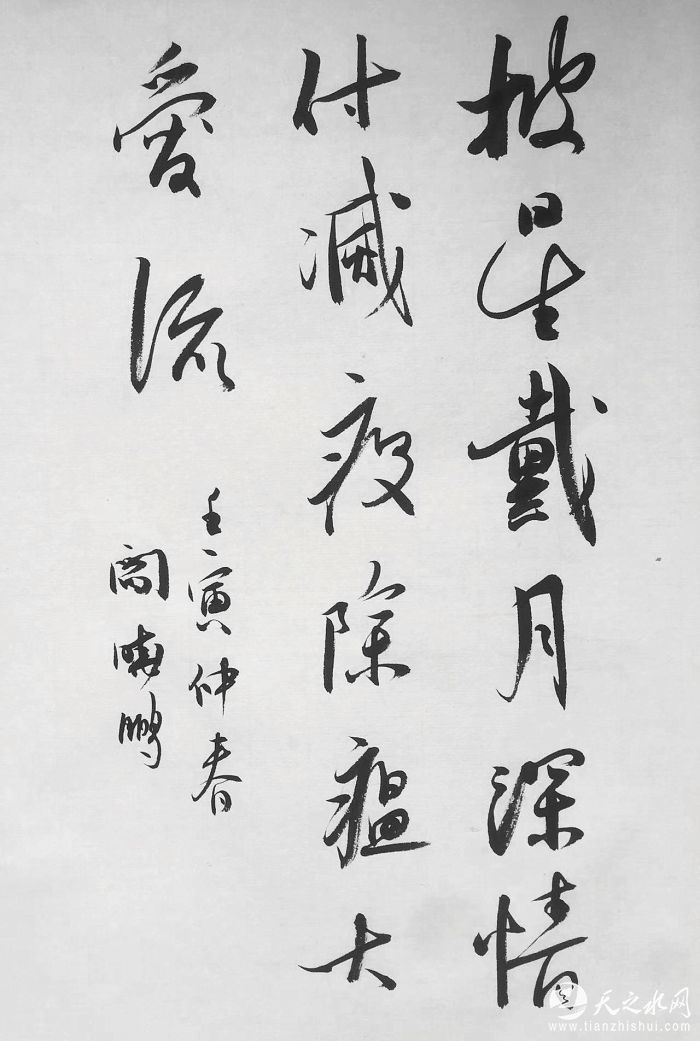 披星戴月深情
付减疫除瘟大
爱流
壬寅仲春
阎晓鹏
天之水网
www.tianzhishui.com